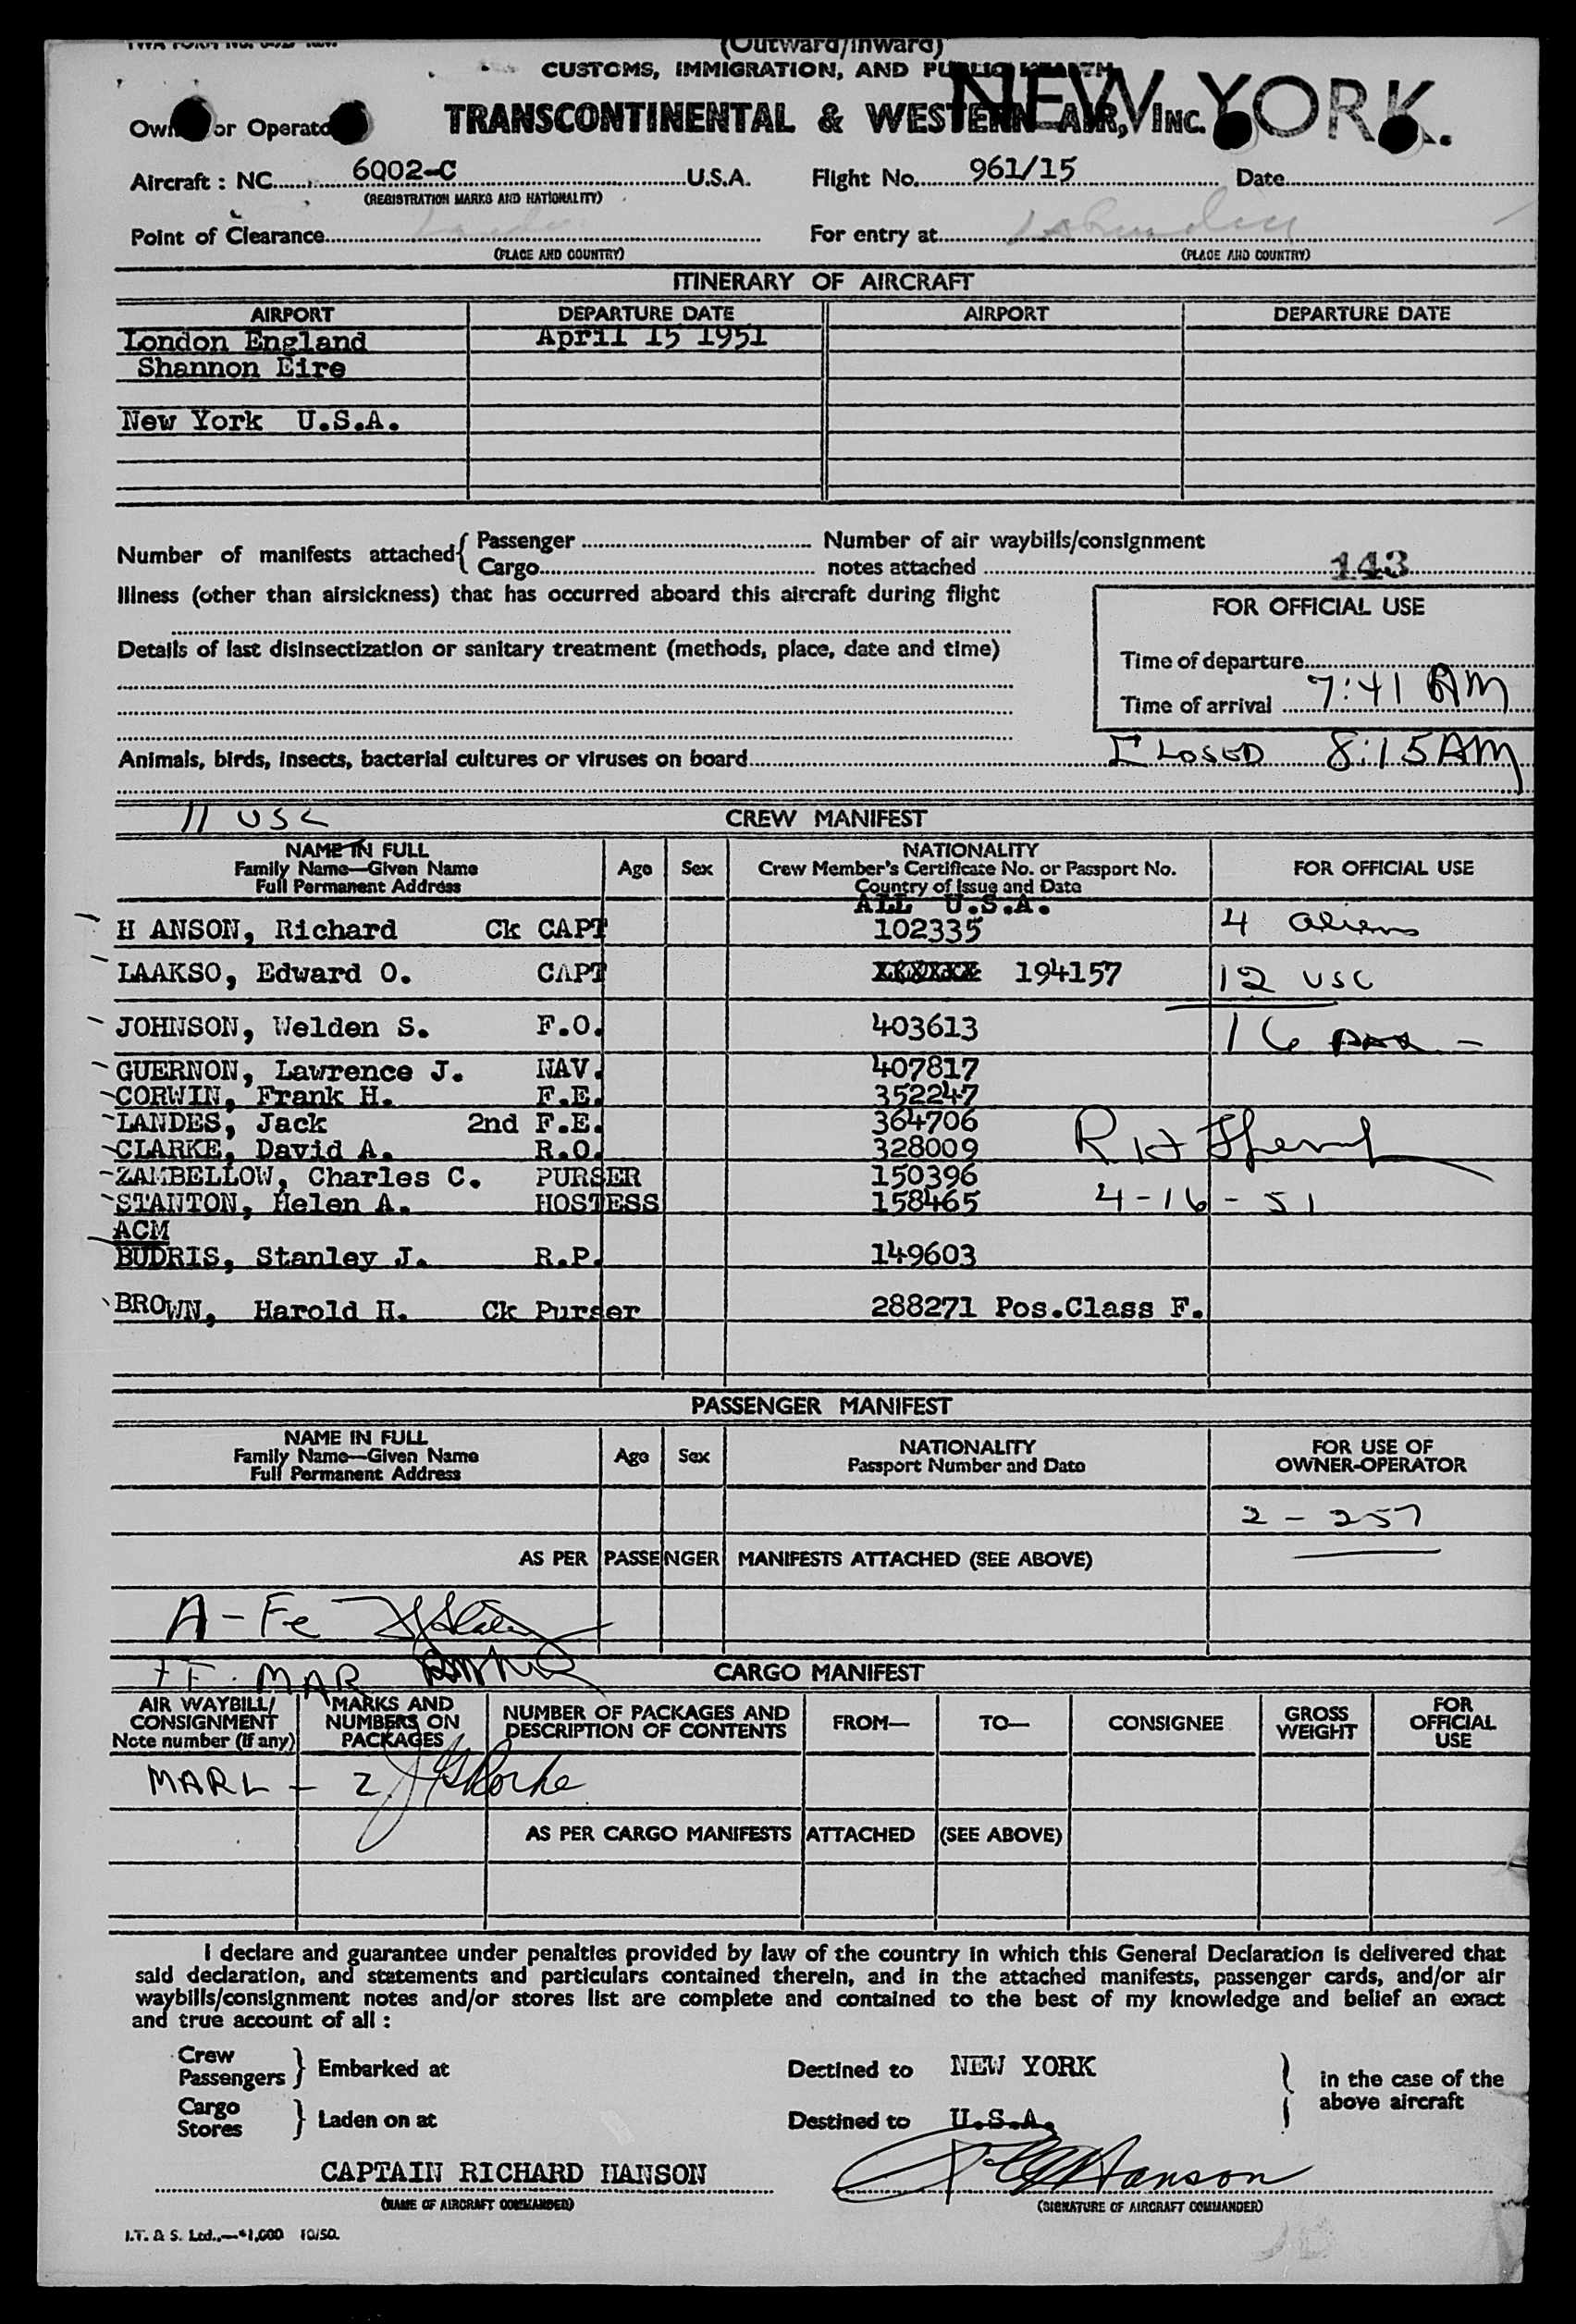 (Outward/Inward)
CUSTOMS, IMMIGRATION, AND PUBLIC HEALTH
NEW YORK.
Owner or Operator TRANSCONTINENTAL & WESTERN AIR, INC.
Aircraft : NC 6002-C U.S.A. Flight No. 961/15 Date
(REGISTRATION MARKS AND NATIONALITY)
Point of Clearance For entry at
(PLACE AND COUNTRY) (PLACE AND COUNTRY)
ITINERARY OF AIRCRAFT
AIRPORT DEPARTURE DATE AIRPORT DEPARTURE DATE
London England April 15 1951
Shannon Eire
New York U.S.A.
Number of manifests attached { Passenger Number of air waybills/consignment
Cargo notes attached 143
Illness (other than airsickness) that has occurred aboard this aircraft during flight
FOR OFFICIAL USE
Details of last disinsectization or sanitary treatment (methods, place, date and time)
Time of departure
Time of arrival 7:41 AM
Animals, birds, insects, bacterial cultures or viruses on board CLOSED 8:15 AM
11 USC CREW MANIFEST
NAME IN FULL
Family Name—Given Name
Full Permanent Address
Age Sex
NATIONALITY
Crew Member's Certificate No. or Passport No.
Country of Issue and Date
FOR OFFICIAL USE
ALL U.S.A.
H ANSON, Richard Ck CAPT 102335 4 aliens
LAAKSO, Edward O. CAPT XXXXXX 194157 12 USC
JOHNSON, Welden S. F.O. 403613 16
GUERNON, Lawrence J. NAV. 407817
CORWIN, Frank H. F.E. 352247
LANDES, Jack 2nd F.E. 364706
CLARKE, David A. R.O. 328009
ZAMBELLOW, Charles C. PURSER 150396
STANTON, Helen A. HOSTESS 158465 4-16-51
ACM
BUDRIS, Stanley J. R.P. 149603
BROWN, Harold H. Ck Purser 288271 Pos.Class F.
PASSENGER MANIFEST
NAME IN FULL
Family Name—Given Name
Full Permanent Address
Age Sex
NATIONALITY
Passport Number and Date
FOR USE OF
OWNER-OPERATOR
2 - 257
AS PER PASSENGER MANIFESTS ATTACHED (SEE ABOVE)
A - Fe
MAR
CARGO MANIFEST
AIR WAYBILL/
CONSIGNMENT
Note number (if any)
MARKS AND
NUMBERS ON
PACKAGES
NUMBER OF PACKAGES AND
DESCRIPTION OF CONTENTS
FROM— TO— CONSIGNEE
GROSS
WEIGHT
FOR
OFFICIAL
USE
MARL - Z
AS PER CARGO MANIFESTS ATTACHED (SEE ABOVE)
I declare and guarantee under penalties provided by law of the country in which this General Declaration is delivered that
said declaration, and statements and particulars contained therein, and in the attached manifests, passenger cards, and/or air
waybills/consignment notes and/or stores list are complete and contained to the best of my knowledge and belief an exact
and true account of all :
Crew
Passengers } Embarked at Destined to NEW YORK } in the case of the
above aircraft
Cargo
Stores } Laden on at Destined to U.S.A.
CAPTAIN RICHARD HANSON Hanson
(NAME OF AIRCRAFT COMMANDER) (SIGNATURE OF AIRCRAFT COMMANDER)
I.T. & S. Ltd.,—*1,000 10/50.